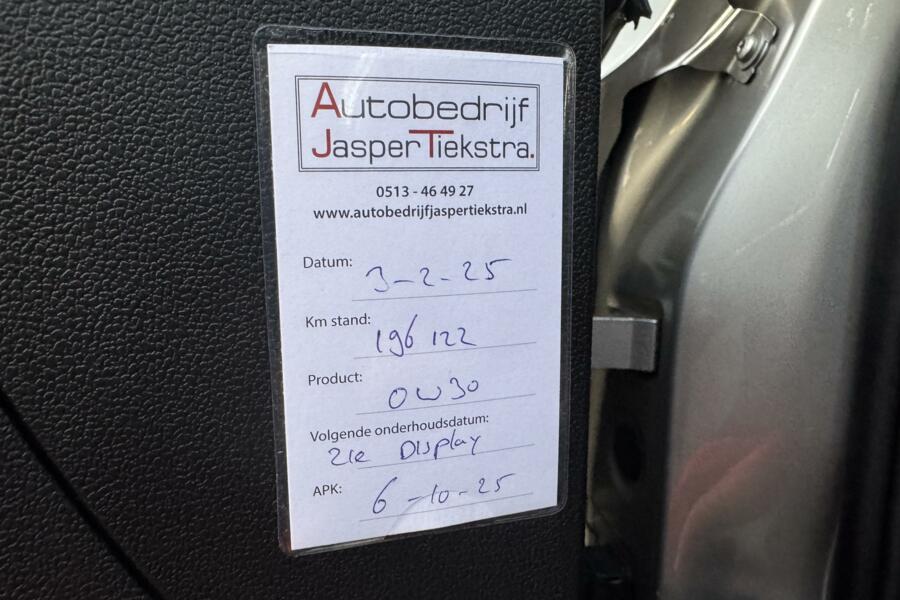 Autobedrijf
JasperTiekstra.
0513 - 46 49 27
www.autobedrijfjaspertiekstra.nl
Datum: 3-2-25
Km stand: 196 122
Product: 0W30
Volgende onderhoudsdatum:
Zie Display
APK: 6-10-25